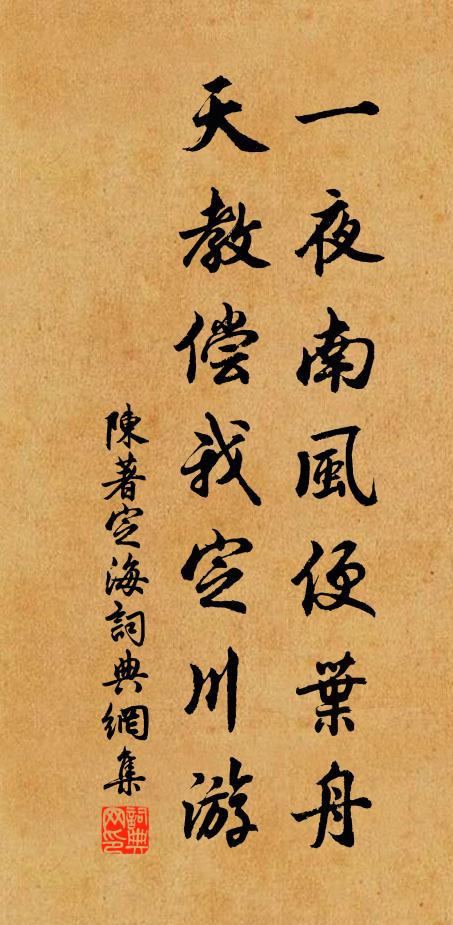 一夜南風便葉舟
天教偿我定川游
陳著定海詞典網集
詞典网印